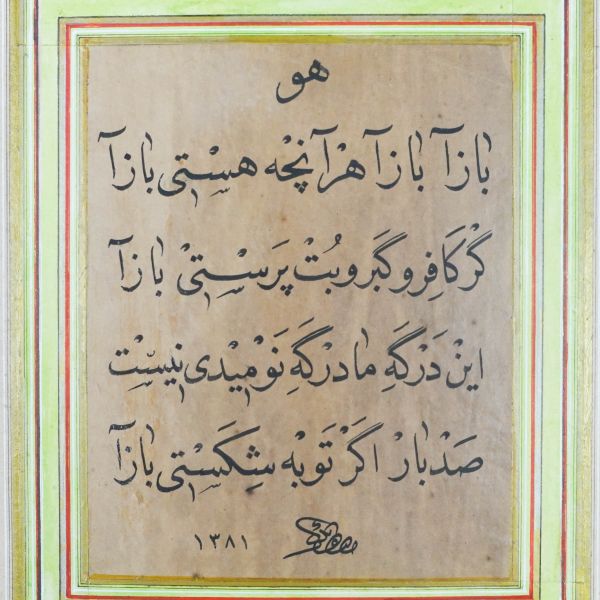 هو
بازآ بازآ هر آنچه هستی بازآ
گَرْ کافِر و گَبر و بُتْ پَرَسْتیْ بازآ
اینْ دَرْگَهِ ما دَرگَهِ نَوْمیٖدی نیٖسْت
صَدْ بارْ اگَرْ تَوْبه شِکَسْتیٖ بازآ
۱۳۸۱